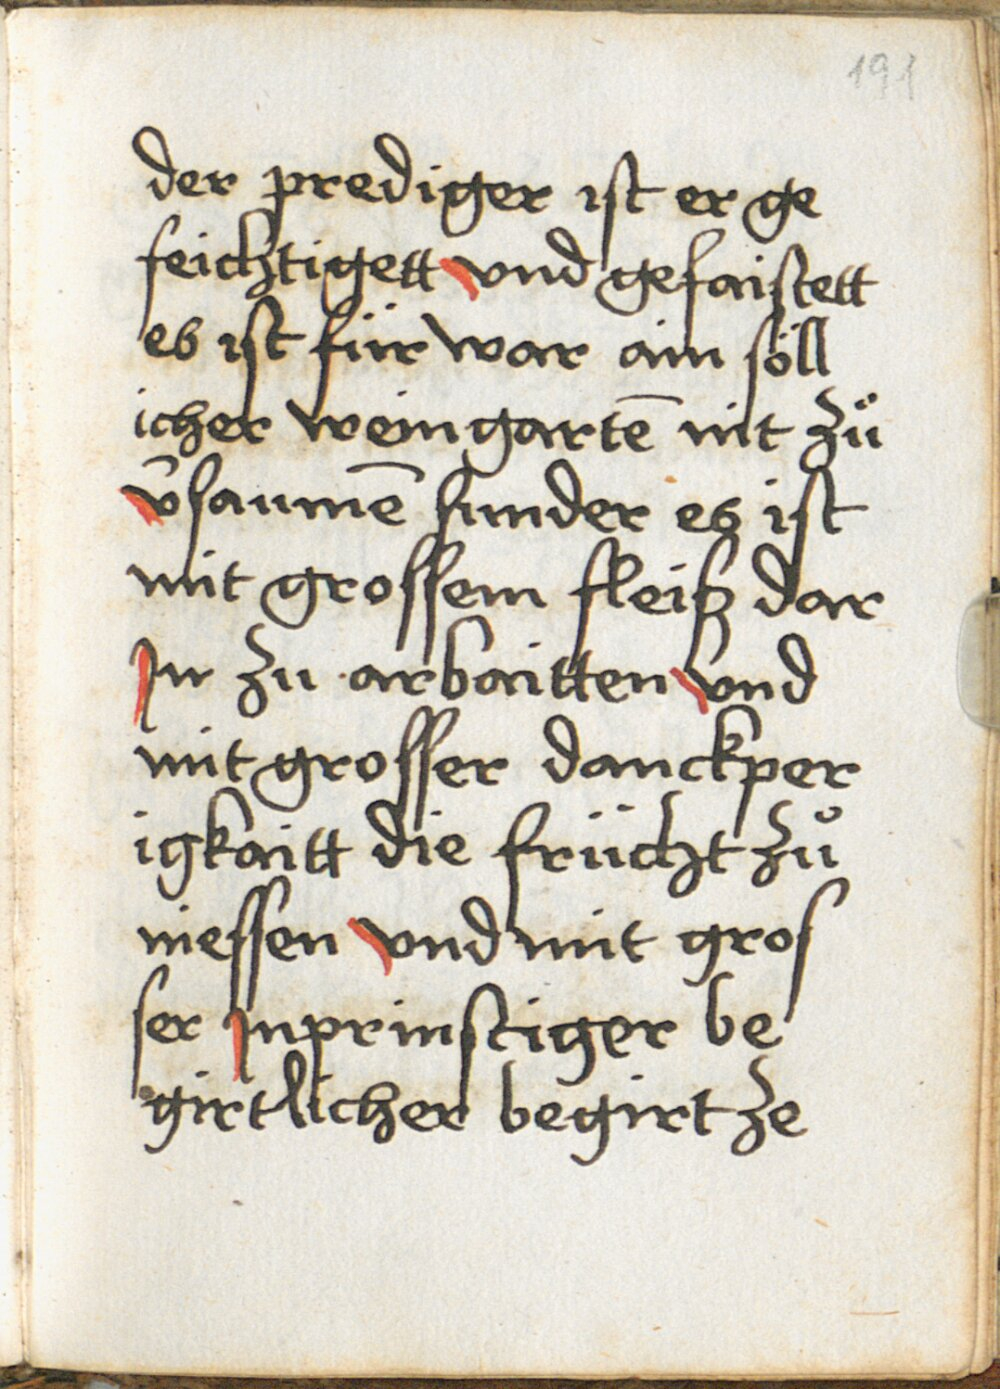 191
der prediger ist er ge
feichtigett vnd gefaistett
es ist für war ain söll
icher weingartē nit zů
v̄saumē sunder es ist
mit grossem fleiß dar
In zu arbaitten vnd
mit grosser danckper
igkaitt die frücht zů
niessen vnd mit gros
ser Inprinstiger be
girtlicher begirt ze